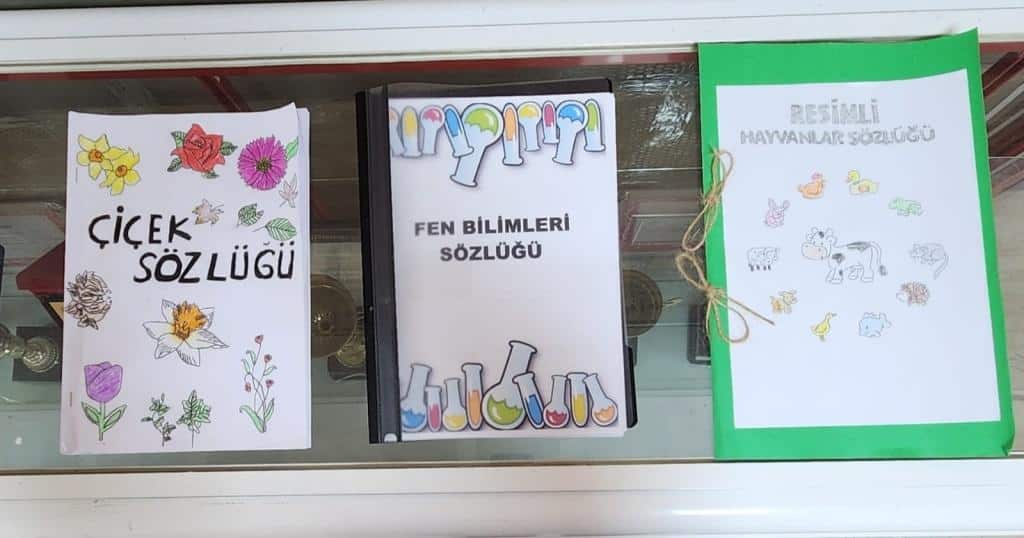 ÇİÇEK
SÖZLÜĞÜ
FEN BİLİMLERİ
SÖZLÜĞÜ
RESİMLİ
HAYVANLAR SÖZLÜĞÜ